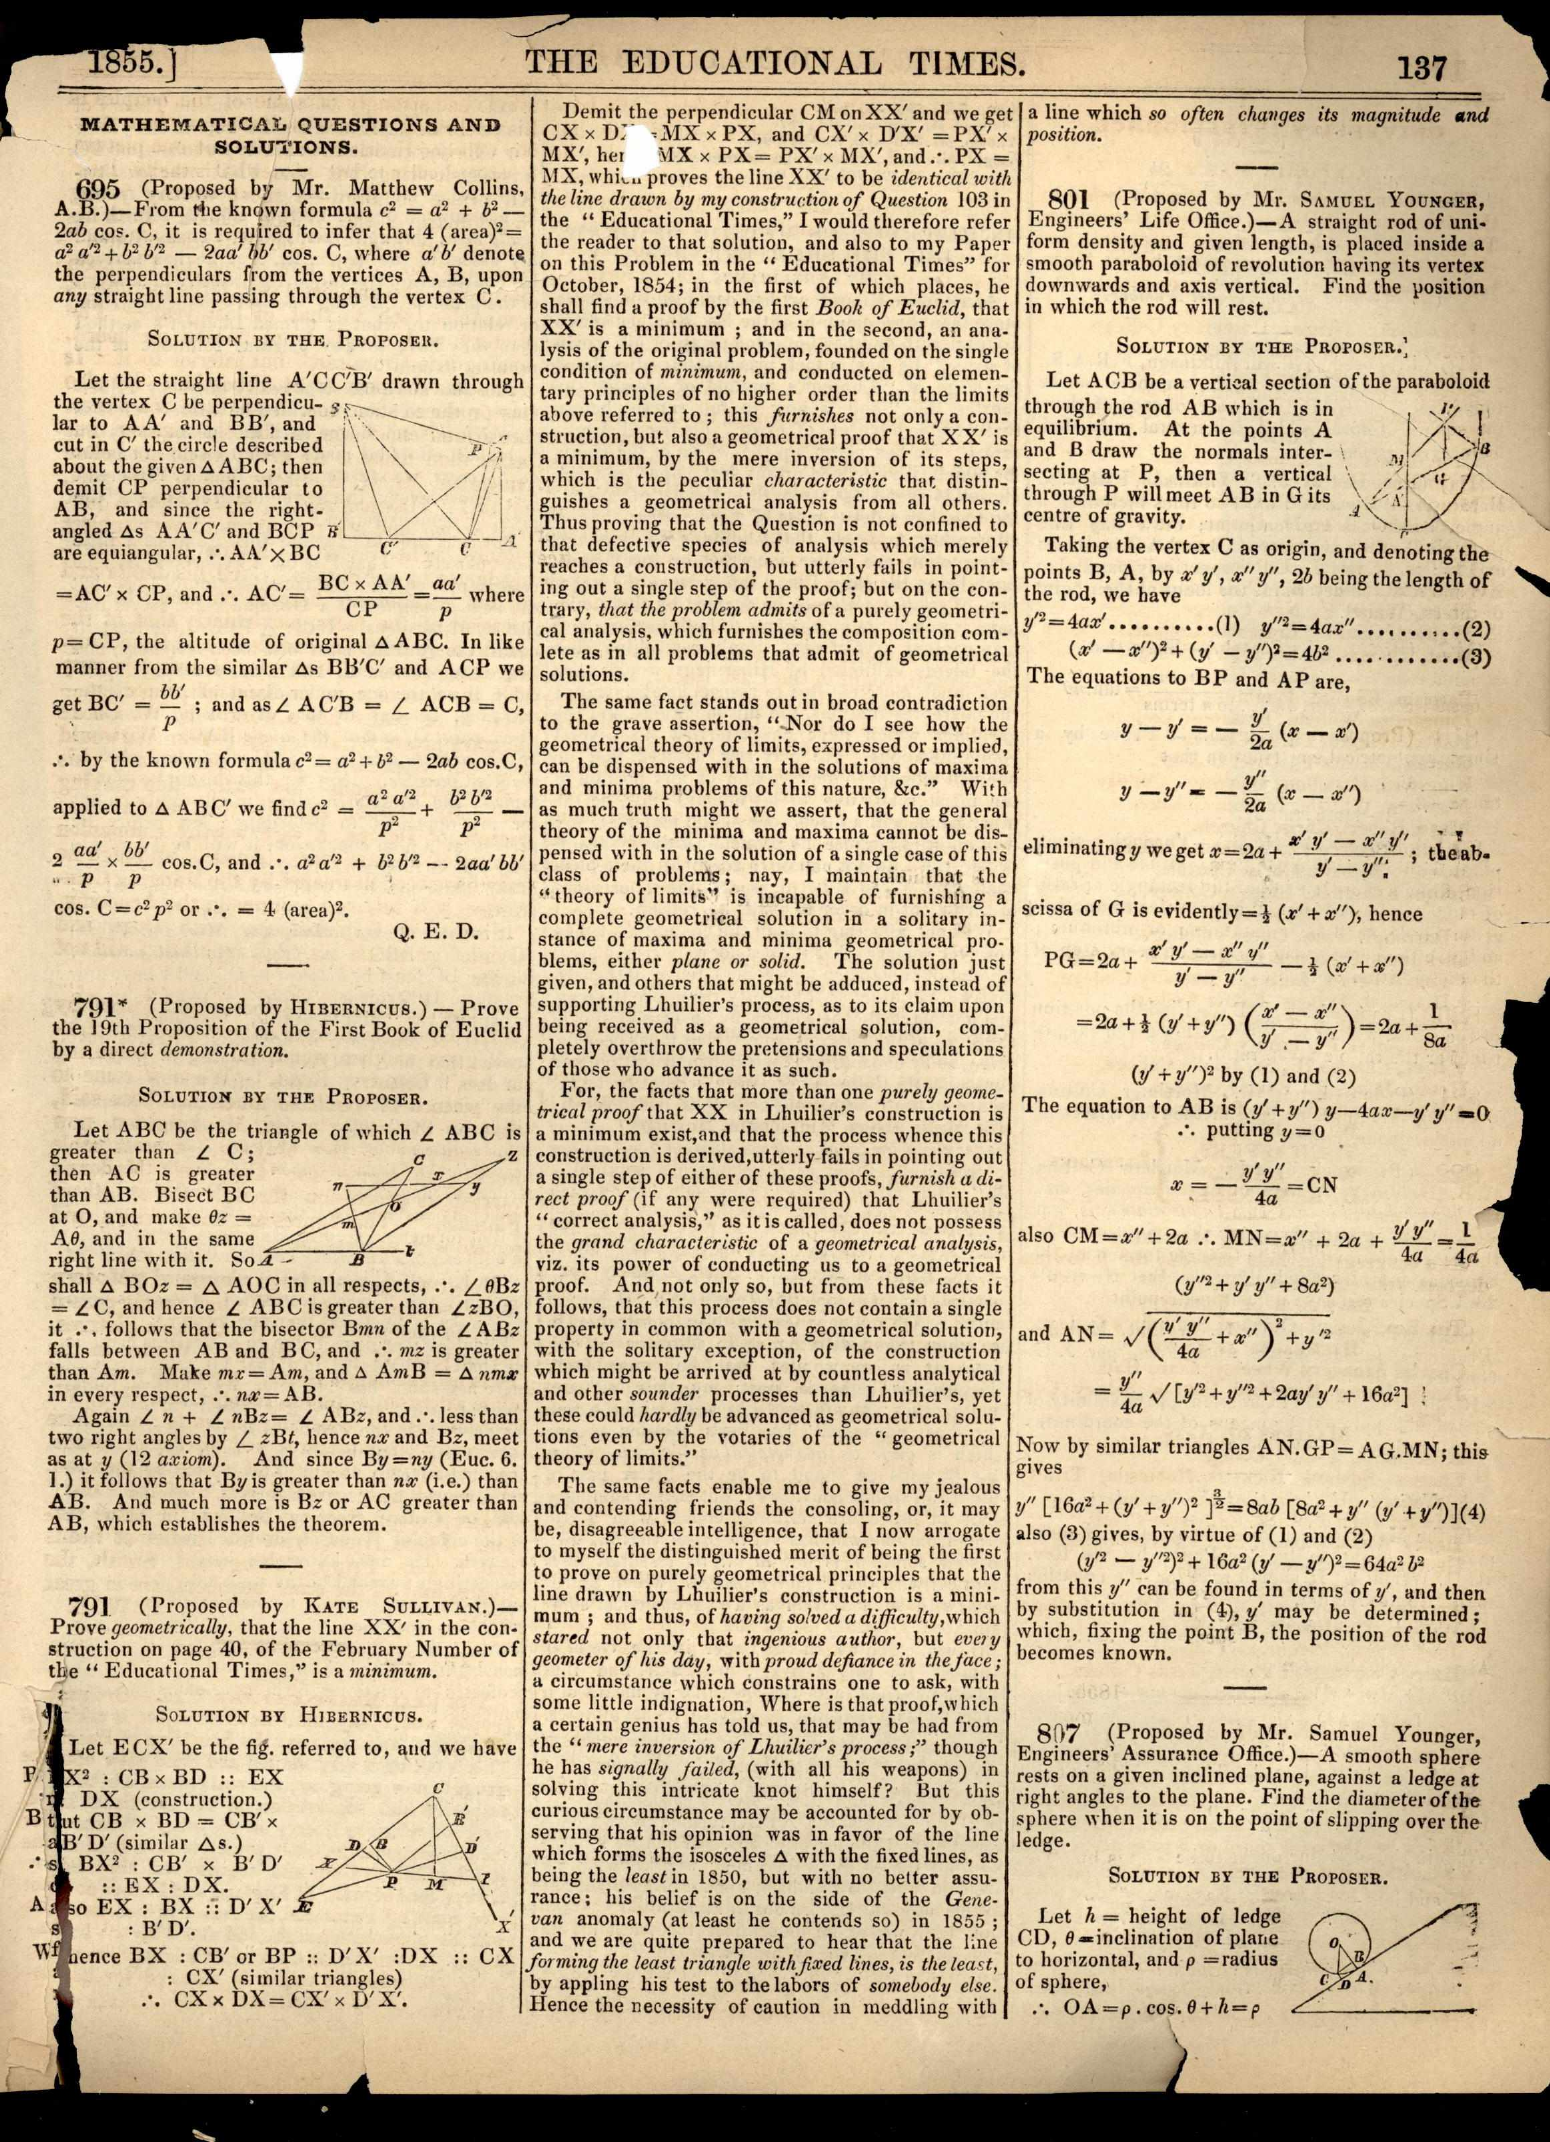 1855.]
THE EDUCATIONAL TIMES.
137
MATHEMATICAL QUESTIONS AND
SOLUTIONS.
695 (Proposed by Mr. Matthew Collins,
A.B.)—From the known formula c² = a² + b² —
2ab cos. C, it is required to infer that 4 (area)²=
a² a′² + b² b′² — 2aa′ bb′ cos. C, where a′ b′ denote
the perpendiculars from the vertices A, B, upon
any straight line passing through the vertex C.
SOLUTION BY THE PROPOSER.
Let the straight line A′CC′B′ drawn through
the vertex C be perpendicu-
lar to AA′ and BB′, and
cut in C′ the circle described
about the given △ ABC; then
demit CP perpendicular to
AB, and since the right-
angled △s AA′C′ and BCP
are equiangular, ∴ AA′×BC
=AC′× CP, and ∴ AC′= BC × AA′/CP = aa′/p where
p= CP, the altitude of original △ ABC. In like
manner from the similar △s BB′C′ and ACP we
get BC′ = bb′/p ; and as ∠ AC′B = ∠ ACB = C,
∴ by the known formula c²= a² + b² — 2ab cos.C,
applied to △ ABC′ we find c² = a² a′²/p² + b² b′²/p² —
2 aa′/p × bb′/p cos.C, and ∴ a² a′² + b² b′² -- 2aa′ bb′
cos. C=c² p² or ∴ = 4 (area)².
Q. E. D.
791* (Proposed by HIBERNICUS.) — Prove
the 19th Proposition of the First Book of Euclid
by a direct demonstration.
SOLUTION BY THE PROPOSER.
Let ABC be the triangle of which ∠ ABC is
greater than ∠ C;
then AC is greater
than AB. Bisect BC
at O, and make θz =
Aθ, and in the same
right line with it. So
shall △ BOz = △ AOC in all respects, ∴ ∠θBz
= ∠C, and hence ∠ ABC is greater than ∠zBO,
it ∴ follows that the bisector Bmn of the ∠ABz
falls between AB and BC, and ∴ mz is greater
than Am. Make mx= Am, and △ AmB = △ nmx
in every respect, ∴ nx= AB.
Again ∠ n + ∠ nBz= ∠ ABz, and ∴ less than
two right angles by ∠ zBt, hence nx and Bz, meet
as at y (12 axiom). And since By=ny (Euc. 6.
1.) it follows that By is greater than nx (i.e.) than
AB. And much more is Bz or AC greater than
AB, which establishes the theorem.
791 (Proposed by KATE SULLIVAN.)—
Prove geometrically, that the line XX′ in the con-
struction on page 40, of the February Number of
the “ Educational Times,” is a minimum.
SOLUTION BY HIBERNICUS.
Let ECX′ be the fig. referred to, and we have
X² : CB × BD :: EX
DX (construction.)
But CB × BD = CB′ ×
B′ D′ (similar △s.)
∴ BX² : CB′ × B′ D′
:: EX : DX.
Also EX : BX :: D′ X′
: B′ D′.
Whence BX : CB′ or BP :: D′ X′ :DX :: CX
: CX′ (similar triangles)
∴ CX × DX=CX′ × D′ X′.
Demit the perpendicular CM on XX′ and we get
CX × D = MX × PX, and CX′ × D′X′ = PX′ ×
MX′, MX × PX= PX′ × MX′, and ∴ PX =
MX, which proves the line XX′ to be identical with
the line drawn by my construction of Question 103 in
the “ Educational Times,” I would therefore refer
the reader to that solution, and also to my Paper
on this Problem in the “ Educational Times” for
October, 1854; in the first of which places, he
shall find a proof by the first Book of Euclid, that
XX′ is a minimum ; and in the second, an ana-
lysis of the original problem, founded on the single
condition of minimum, and conducted on elemen-
tary principles of no higher order than the limits
above referred to ; this furnishes not only a con-
struction, but also a geometrical proof that XX′ is
a minimum, by the mere inversion of its steps,
which is the peculiar characteristic that distin-
guishes a geometrical analysis from all others.
Thus proving that the Question is not confined to
that defective species of analysis which merely
reaches a construction, but utterly fails in point-
ing out a single step of the proof; but on the con-
trary, that the problem admits of a purely geometri-
cal analysis, which furnishes the composition com-
lete as in all problems that admit of geometrical
solutions.
The same fact stands out in broad contradiction
to the grave assertion, “Nor do I see how the
geometrical theory of limits, expressed or implied,
can be dispensed with in the solutions of maxima
and minima problems of this nature, &c.” With
as much truth might we assert, that the general
theory of the minima and maxima cannot be dis-
pensed with in the solution of a single case of this
class of problems; nay, I maintain that the
“theory of limits” is incapable of furnishing a
complete geometrical solution in a solitary in-
stance of maxima and minima geometrical pro-
blems, either plane or solid. The solution just
given, and others that might be adduced, instead of
supporting Lhuilier’s process, as to its claim upon
being received as a geometrical solution, com-
pletely overthrow the pretensions and speculations
of those who advance it as such.
For, the facts that more than one purely geome-
trical proof that XX in Lhuilier’s construction is
a minimum exist,and that the process whence this
construction is derived,utterly fails in pointing out
a single step of either of these proofs, furnish a di-
rect proof (if any were required) that Lhuilier’s
“ correct analysis,” as it is called, does not possess
the grand characteristic of a geometrical analysis,
viz. its power of conducting us to a geometrical
proof. And not only so, but from these facts it
follows, that this process does not contain a single
property in common with a geometrical solution,
with the solitary exception, of the construction
which might be arrived at by countless analytical
and other sounder processes than Lhuilier’s, yet
these could hardly be advanced as geometrical solu-
tions even by the votaries of the “ geometrical
theory of limits.”
The same facts enable me to give my jealous
and contending friends the consoling, or, it may
be, disagreeable intelligence, that I now arrogate
to myself the distinguished merit of being the first
to prove on purely geometrical principles that the
line drawn by Lhuilier’s construction is a mini-
mum ; and thus, of having solved a difficulty,which
stared not only that ingenious author, but every
geometer of his day, with proud defiance in the face ;
a circumstance which constrains one to ask, with
some little indignation, Where is that proof,which
a certain genius has told us, that may be had from
the “ mere inversion of Lhuilier’s process ;” though
he has signally failed, (with all his weapons) in
solving this intricate knot himself? But this
curious circumstance may be accounted for by ob-
serving that his opinion was in favor of the line
which forms the isosceles △ with the fixed lines, as
being the least in 1850, but with no better assu-
rance; his belief is on the side of the Gene-
van anomaly (at least he contends so) in 1855 ;
and we are quite prepared to hear that the line
forming the least triangle with fixed lines, is the least,
by appling his test to the labors of somebody else.
Hence the necessity of caution in meddling with
a line which so often changes its magnitude and
position.
801 (Proposed by Mr. SAMUEL YOUNGER,
Engineers’ Life Office.)—A straight rod of uni-
form density and given length, is placed inside a
smooth paraboloid of revolution having its vertex
downwards and axis vertical. Find the position
in which the rod will rest.
SOLUTION BY THE PROPOSER.
Let ACB be a vertical section of the paraboloid
through the rod AB which is in
equilibrium. At the points A
and B draw the normals inter-
secting at P, then a vertical
through P will meet AB in G its
centre of gravity.
Taking the vertex C as origin, and denoting the
points B, A, by x′ y′, x″ y″, 2b being the length of
the rod, we have
y′²=4ax′..........(1) y″²=4ax″..........(2)
(x′ — x″)² + (y′ — y″)²=4b² ............(3)
The equations to BP and AP are,
y — y′ = — y′/2a (x — x′)
y — y″ = — y″/2a (x — x″)
eliminating y we get x=2a + x′ y′ — x″ y″/y′ — y″ ; the ab-
scissa of G is evidently=½ (x′ + x″), hence
PG=2a + x′ y′ — x″ y″/y′ — y″ — ½ (x′ + x″)
=2a + ½ (y′ + y″) (x′ — x″/y′ — y″)=2a + 1/8a
(y′ + y″)² by (1) and (2)
The equation to AB is (y′ + y″) y—4ax—y′ y″ =0
∴ putting y=0
x = — y′ y″/4a = CN
also CM=x″ + 2a ∴ MN=x″ + 2a + y′ y″/4a = 1/4a
(y″² + y′ y″ + 8a²)
and AN= √(y′ y″/4a + x″)² + y′²
= y″/4a √ [y′² + y″² + 2ay′ y″ + 16a²]
Now by similar triangles AN.GP= AG.MN; this
gives
y″ [16a² + (y′ + y″)² ]^3/2=8ab [8a² + y″ (y′ + y″)](4)
also (3) gives, by virtue of (1) and (2)
(y′² — y″²)² + 16a² (y′ — y″)²=64a² b²
from this y″ can be found in terms of y′, and then
by substitution in (4), y′ may be determined;
which, fixing the point B, the position of the rod
becomes known.
807 (Proposed by Mr. Samuel Younger,
Engineers’ Assurance Office.)—A smooth sphere
rests on a given inclined plane, against a ledge at
right angles to the plane. Find the diameter of the
sphere when it is on the point of slipping over the
ledge.
SOLUTION BY THE PROPOSER.
Let h = height of ledge
CD, θ=inclination of plane
to horizontal, and ρ =radius
of sphere,
∴ OA=ρ . cos. θ + h=ρ